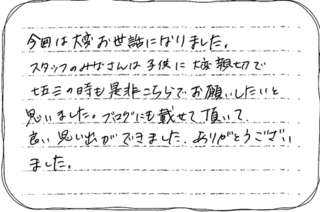 今回は大変お世話になりました。
スタッフのみなさんは子供に大変親切で
七五三の時も是非こちらでお願いしたいと
思いました。ブログにも載せて頂いて
良い思い出ができました。ありがとうござい
ました。